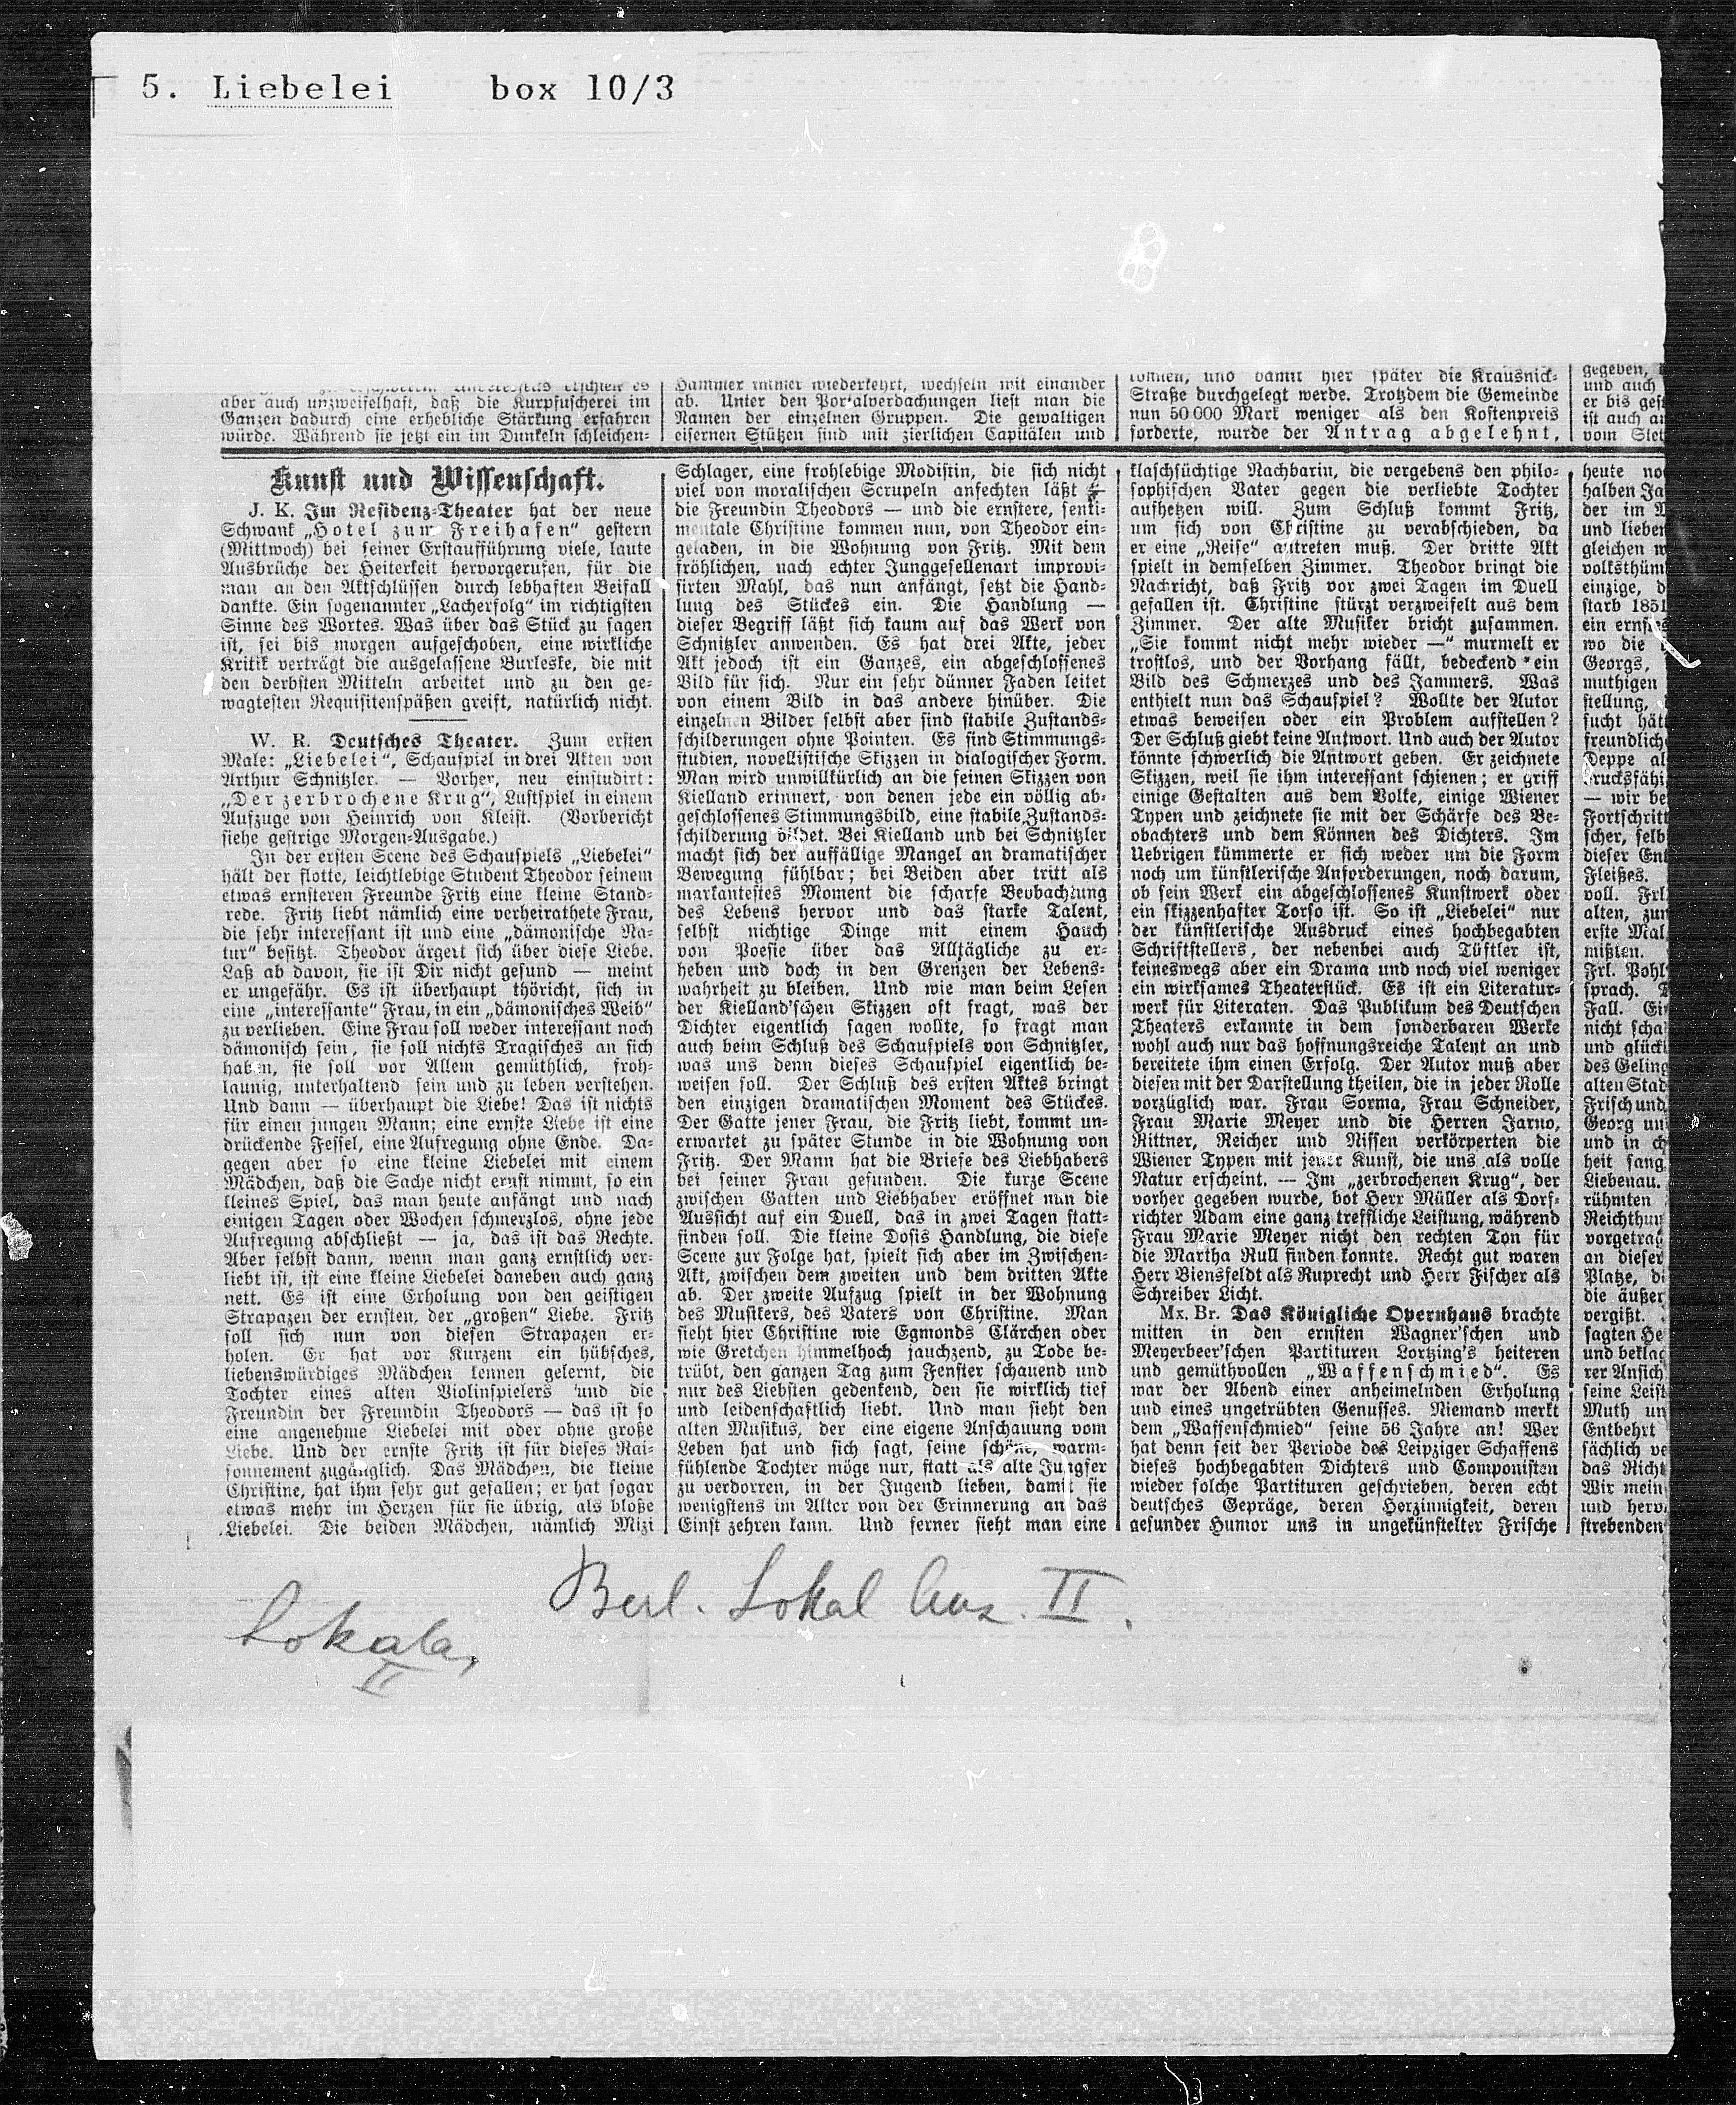 5. Liebelei box 10/3
aber auch unzweifelhaft, daß die Kurpfuscherei im
Ganzen dadurch eine erhebliche Stärkung erfahren
würde. Während sie jetzt ein im Dunkeln schleichen-
Hammer immer wiederkehrt, wechseln mit einander
ab. Unter den Portalverdachungen liest man die
Namen der einzelnen Gruppen. Die gewaltigen
eisernen Stützen sind mit zierlichen Capitälen und
können, und damit hier später die Krausnick-
Straße durchgelegt werde. Trotzdem die Gemeinde
nun 50 000 Mark weniger als den Kostenpreis
forderte, wurde der Antrag abgelehnt,
gegeben,
und auch
er bis gest
ist auch
vom Stet
Kunst und Wissenschaft.
J. K. Im Residenz-Theater hat der neue
Schwank „Hotel zum Freihafen“ gestern
(Mittwoch) bei seiner Erstaufführung viele, laute
Ausbrüche der Heiterkeit hervorgerufen, für die
man an den Aktschlüssen durch lebhaften Beifall
dankte. Ein sogenannter „Lacherfolg“ im richtigsten
Sinne des Wortes. Was über das Stück zu sagen
ist, sei bis morgen aufgeschoben, eine wirkliche
Kritik verträgt die ausgelassene Burleske, die mit
den derbsten Mitteln arbeitet und zu den ge-
wagtesten Requisitenspäßen greift, natürlich nicht.
W. R. Deutsches Theater. Zum ersten
Male: „Liebelei“, Schauspiel in drei Akten von
Arthur Schnitzler. — Vorher, neu einstudirt:
„Der zerbrochene Krug“, Lustspiel in einem
Aufzuge von Heinrich von Kleist. (Vorbericht
siehe gestrige Morgen-Ausgabe.)
In der ersten Scene des Schauspiels „Liebelei“
hält der flotte, leichtlebige Student Theodor seinem
etwas ernsteren Freunde Fritz eine kleine Stand-
rede. Fritz liebt nämlich eine verheirathete Frau,
die sehr interessant ist und eine „dämonische Na-
tur“ besitzt. Theodor ärgert sich über diese Liebe.
Laß ab davon, sie ist Dir nicht gesund — meint
er ungefähr. Es ist überhaupt thöricht, sich in
eine „interessante“ Frau, in ein „dämonisches Weib“
zu verlieben. Eine Frau soll weder interessant noch
dämonisch sein, sie soll nichts Tragisches an sich
haben, sie soll vor Allem gemüthlich, froh-
launig, unterhaltend sein und zu leben verstehen.
Und dann — überhaupt die Liebe! Das ist nichts
für einen jungen Mann; eine ernste Liebe ist eine
drückende Fessel, eine Aufregung ohne Ende. Da-
gegen aber so eine kleine Liebelei mit einem
Mädchen, daß die Sache nicht ernst nimmt, so ein
kleines Spiel, das man heute anfängt und nach
einigen Tagen oder Wochen schmerzlos, ohne jede
Aufregung abschließt — ja, das ist das Rechte.
Aber selbst dann, wenn man ganz ernstlich ver-
liebt ist, ist eine kleine Liebelei daneben auch ganz
nett. Es ist eine Erholung von den geistigen
Strapazen der ernsten, der „großen“ Liebe. Fritz
soll sich nun von diesen Strapazen er-
holen. Er hat vor Kurzem ein hübsches,
liebenswürdiges Mädchen kennen gelernt, die
Tochter eines alten Violinspielers und die
Freundin der Freundin Theodors — das ist so
eine angenehme Liebelei mit oder ohne große
Liebe. Und der ernste Fritz ist für dieses Rai-
sonnement zugänglich. Das Mädchen, die kleine
Christine, hat ihm sehr gut gefallen; er hat sogar
etwas mehr im Herzen für sie übrig, als bloße
Liebelei. Die beiden Mädchen, nämlich Mizi
Schlager, eine frohlebige Modistin, die sich nicht
viel von moralischen Scrupeln anfechten läßt —
die Freundin Theodors — und die ernstere, senti-
mentale Christine kommen nun, von Theodor ein-
geladen, in die Wohnung von Fritz. Mit dem
fröhlichen, nach echter Junggesellenart improvi-
sirten Mahl, das nun anfängt, setzt die Hand-
lung des Stückes ein. Die Handlung —
dieser Begriff läßt sich kaum auf das Werk von
Schnitzler anwenden. Es hat drei Akte, jeder
Akt jedoch ist ein Ganzes, ein abgeschlossenes
Bild für sich. Nur ein sehr dünner Faden leitet
von einem Bild in das andere hinüber. Die
einzelnen Bilder selbst aber sind stabile Zustands-
schilderungen ohne Pointen. Es sind Stimmungs-
studien, novellistische Skizzen in dialogischer Form.
Man wird unwillkürlich an die feinen Skizzen von
Kielland erinnert, von denen jede ein völlig ab-
geschlossenes Stimmungsbild, eine stabile Zustands-
schilderung bildet. Bei Kielland und bei Schnitzler
macht sich der auffällige Mangel an dramatischer
Bewegung fühlbar; bei Beiden aber tritt als
markantestes Moment die scharfe Beobachtung
des Lebens hervor und das starke Talent,
selbst nichtige Dinge mit einem Hauch
von Poesie über das Alltägliche zu er-
heben und doch in den Grenzen der Lebens-
wahrheit zu bleiben. Und wie man beim Lesen
der Kielland'schen Skizzen oft fragt, was der
Dichter eigentlich sagen wollte, so fragt man
auch beim Schluß des Schauspiels von Schnitzler,
was uns denn dieses Schauspiel eigentlich be-
weisen soll. Der Schluß des ersten Aktes bringt
den einzigen dramatischen Moment des Stückes.
Der Gatte jener Frau, die Fritz liebt, kommt un-
erwartet zu später Stunde in die Wohnung von
Fritz. Der Mann hat die Briefe des Liebhabers
bei seiner Frau gefunden. Die kurze Scene
zwischen Gatten und Liebhaber eröffnet nun die
Aussicht auf ein Duell, das in zwei Tagen statt-
finden soll. Die kleine Dosis Handlung, die diese
Scene zur Folge hat, spielt sich aber im Zwischen-
Akt, zwischen dem zweiten und dem dritten Akte
ab. Der zweite Aufzug spielt in der Wohnung
des Musikers, des Vaters von Christine. Man
sieht hier Christine wie Egmonds Clärchen oder
wie Gretchen himmelhoch jauchzend, zu Tode be-
trübt, den ganzen Tag zum Fenster schauend und
nur des Liebsten gedenkend, den sie wirklich tief
und leidenschaftlich liebt. Und man sieht den
alten Musikus, der eine eigene Anschauung vom
Leben hat und sich sagt, seine schöne, warm-
fühlende Tochter möge nur, statt als alte Jungfer
zu verdorren, in der Jugend lieben, damit sie
wenigstens im Alter von der Erinnerung an das
Einst zehren kann. Und ferner sieht man eine
klaschsüchtige Nachbarin, die vergebens den philo-
sophischen Vater gegen die verliebte Tochter
aufhetzen will. Zum Schluß kommt Fritz,
um sich von Christine zu verabschieden, da
er eine „Reise“ antreten muß. Der dritte Akt
spielt in demselben Zimmer. Theodor bringt die
Nachricht, daß Fritz vor zwei Tagen im Duell
gefallen ist. Christine stürzt verzweifelt aus dem
Zimmer. Der alte Musiker bricht zusammen.
„Sie kommt nicht mehr wieder —“ murmelt er
trostlos, und der Vorhang fällt, bedeckend ein
Bild des Schmerzes und des Jammers. Was
enthielt nun das Schauspiel? Wollte der Autor
etwas beweisen oder ein Problem aufstellen?
Der Schluß giebt keine Antwort. Und auch der Autor
könnte schwerlich die Antwort geben. Er zeichnete
Skizzen, weil sie ihm interessant schienen; er griff
einige Gestalten aus dem Volke, einige Wiener
Typen und zeichnete sie mit der Schärfe des Be-
obachters und dem Können des Dichters. Im
Uebrigen kümmerte er sich weder um die Form
noch um künstlerische Anforderungen, noch darum,
ob sein Werk ein abgeschlossenes Kunstwerk oder
ein skizzenhafter Torso ist. So ist „Liebelei“ nur
der künstlerische Ausdruck eines hochbegabten
Schriftstellers, der nebenbei auch Tüftler ist,
keineswegs aber ein Drama und noch viel weniger
ein wirksames Theaterstück. Es ist ein Literatur-
werk für Literaten. Das Publikum des Deutschen
Theaters erkannte in dem sonderbaren Werke
wohl auch nur das hoffnungsreiche Talent an und
bereitete ihm einen Erfolg. Der Autor muß aber
diesen mit der Darstellung theilen, die in jeder Rolle
vorzüglich war. Frau Sorma, Frau Schneider,
Frau Marie Meyer und die Herren Jarno,
Rittner, Reicher und Nissen verkörperten die
Wiener Typen mit jener Kunst, die uns als volle
Natur erscheint. — Im „zerbrochenen Krug“, der
vorher gegeben wurde, bot Herr Müller als Dorf-
richter Adam eine ganz treffliche Leistung, während
Frau Marie Meyer nicht den rechten Ton für
die Martha Rull finden konnte. Recht gut waren
Herr Biensfeldt als Ruprecht und Herr Fischer als
Schreiber Licht.
Mx. Br. Das Königliche Opernhaus brachte
mitten in den ernsten Wagner'schen und
Meyerbeer'schen Partituren Lortzing's heiteren
und gemüthvollen „Waffenschmied“. Es
war der Abend einer anheimelnden Erholung
und eines ungetrübten Genusses. Niemand merkt
dem „Waffenschmied“ seine 56 Jahre an! Wer
hat denn seit der Periode des Leipziger Schaffens
dieses hochbegabten Dichters und Componisten
wieder solche Partituren geschrieben, deren echt
deutsches Gepräge, deren Herzinnigkeit, deren
gesunder Humor uns in ungekünstelter Frische
heute no
halben Ja
der im
und lieben
gleichen w
volksthüm
einzige, d
starb 1851
ein ernstes
wo die
Georgs,
muthigen
stellung,
sucht hätt
freundlich
Deppe al
drucksfähi
— wir be
Fortschritt
scher, selb
dieser Ent
Fleißes.
voll. Frl
alten, zum
erste Mal
mißten.
Frl. Pohl
sprach.
Fall. Ei
nicht scha
und glückl
des Geling
alten Stad
Frisch und
Georg un
und in ch
heit sang
Liebenau.
rühmten
Reichthum
vorgetrag
an dieser
Platze, di
die äußer
vergißt.
sagten He
und beklag
rer Ansich
seine Leist
Muth un
Entbehrt
sächlich ve
das Richt
Wir mein
und herv
strebenden
Berl. Lokal Anz. II.
Lokala,
II